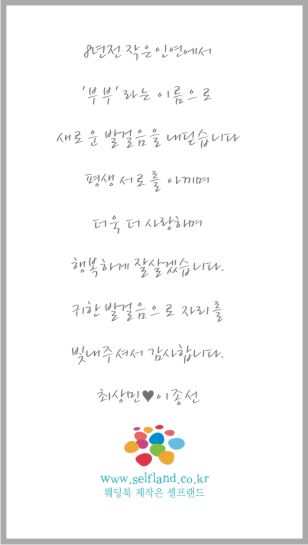 8년전 작은인연에서
'부부'라는 이름으로
새로운 발걸음을 내딛습니다
평생 서로를 아끼며
더욱 더 사랑하며
행복하게 잘살겠습니다.
귀한 발걸음으로 자리를
빛내주셔서 감사합니다.
최상민♥이종선
www.selfland.co.kr
웨딩북 제작은 셀프랜드